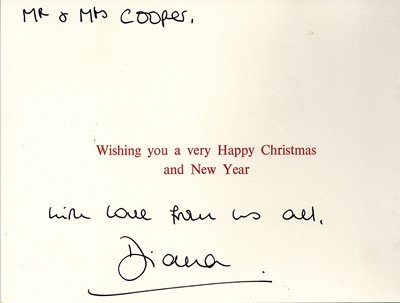 Mr & Mrs Cooper.
Wishing you a very Happy Christmas
and New Year
with love from us all,
Diana.